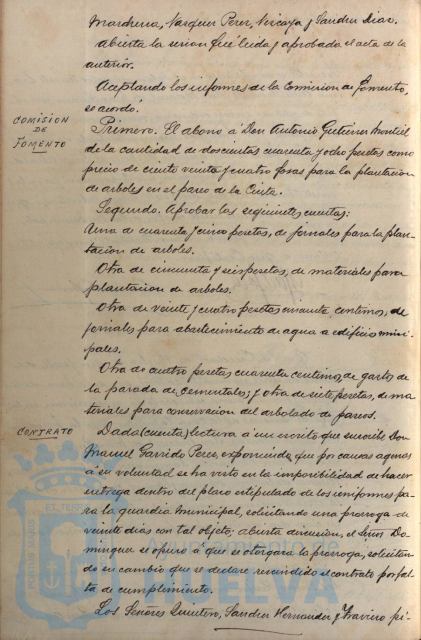 Marchena, Vazquez Perez, Vizcaya y Sanchez Diaz.
abierta la sesion fué leida y aprobada el acta de la
anterior.
Aceptando los informes de la Comision de Fomento,
se acordó.
COMISION
DE
FOMENTO
Primero. El abono á Don Antonio Gutierrez Montiel
de la cantidad de doscientas cuarenta y ocho pesetas como
precio de ciento veinte y cuatro fosas para la plantacion
de arboles en el paseo de la Cinta.
Segundo. Aprobar las siguientes cuentas:
Una de cuarenta y cinco pesetas, de jornales para la plan-
tacion de arboles.
Otra de cincuenta y seis pesetas, de materiales para
plantacion de arboles.
Otra de veinte y cuatro pesetas cincuenta centimos, de
jornales para abastecimiento de agua a edificios muni-
pales.
Otra de cuatro pesetas cuarenta centimos, de gastos de
la parada de sementales; y otra de siete pesetas, de ma-
teriales para conservacion del arbolado de paseos.
CONTRATO
Dada (cuenta) lectura á un escrito que suscribe Don
Manuel Garrido Perez, exponiendo que por causas agenas
á su voluntad se ha visto en la imposibilidad de hacer
entrega dentro del plazo estipulado de los uniformes pa-
ra la guardia municipal, solicitando una prorroga de
veinte dias con tal objeto; abierta discusion, el Señor Do-
minguez se opuso á que se otorgara la prorroga, solicitan-
do en cambio que se declare rescindido el contrato por fal-
ta de cumplimiento.
Los Señores Quintero, Sanchez Hernandez y Traviero pi-
PORTUS MARIS
EL TERR
HUELVA